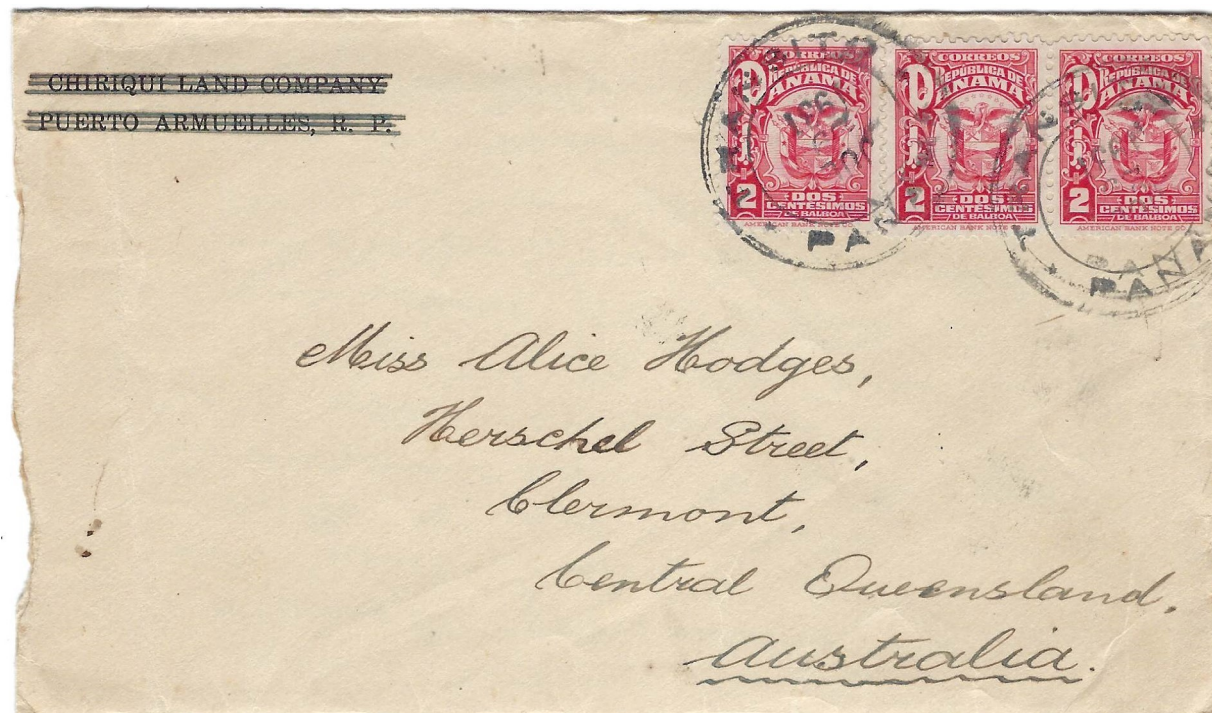 CHIRIQUI LAND COMPANY
PUERTO ARMUELLES, R. P.
CORREOS
REPÚBLICA DE
PANAMA
2
DOS
CENTÉSIMOS
DE BALBOA
AMERICAN BANK NOTE CO.
CORREOS
REPÚBLICA DE
PANAMA
2
DOS
CENTÉSIMOS
DE BALBOA
AMERICAN BANK NOTE CO
CORREOS
REPÚBLICA DE
PANAMA
2
DOS
CENTÉSIMOS
DE BALBOA
AMERICAN BANK NOTE CO.
Miss Alice Hodges,
Herschel Street,
Clermont,
Central Queensland,
Australia.